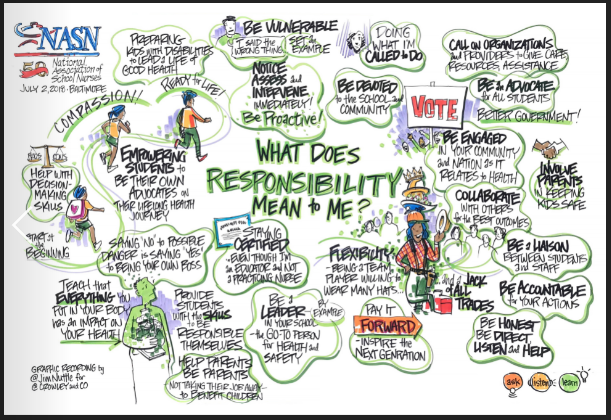 NASN
National
Association of
School Nurses
JULY 2, 2018 • BALTIMORE
PREPARING
KIDS WITH DISABILITIES
to LEAD A LIFE of
GOOD HEALTH
COMPASSION!
READY for LIFE!
BE VULNERABLE
I SAID THE
WRONG THING
SET an
EXAMPLE
DOING
WHAT I'M
CALLED to DO
CALL ON ORGANIZATIONS
and PROVIDERS to GIVE CARE,
RESOURCES, ASSISTANCE
NOTICE
ASSESS and
INTERVENE
IMMEDIATELY!
Be Proactive!
BE DEVOTED
to the SCHOOL and
COMMUNITY
VOTE
Be an ADVOCATE
for ALL STUDENTS
BETTER GOVERNMENT!
PROS
CONS
HELP WITH
DECISION-
MAKING
SKILLS
START at
the BEGINNING
EMPOWERING
STUDENTS to
BE THEIR OWN
ADVOCATES on
THEIR LIFELONG HEALTH
JOURNEY
WHAT DOES
RESPONSIBILITY
MEAN to ME?
BE ENGAGED
IN YOUR COMMUNITY
and NATION as IT
RELATES to HEALTH
INVOLVE
PARENTS
IN KEEPING
KIDS SAFE
COLLABORATE
WITH OTHERS
for the BEST OUTCOMES
SAYING 'NO' to POSSIBLE
DANGER is SAYING 'YES'
to BEING YOUR OWN BOSS
STAYING
CERTIFIED
-EVEN THOUGH I'M
an EDUCATOR and NOT
a PRACTICING NURSE
FLEXIBILITY
-BEING a TEAM
PLAYER WILLING to
WEAR MANY HATS...
...and a JACK
of ALL
TRADES
Be a LIAISON
BETWEEN STUDENTS
and STAFF
Be ACCOUNTABLE
for YOUR ACTIONS
TEACH that
EVERYTHING YOU
PUT IN YOUR BODY
has AN IMPACT ON
YOUR HEALTH
PROVIDE
STUDENTS
with the SKILLS
to BE
RESPONSIBLE
THEMSELVES
HELP PARENTS
BE PARENTS
NOT TAKING THEIR JOB AWAY-
to BENEFIT CHILDREN
BE a
LEADER
IN YOUR SCHOOL
-the GO-TO PERSON
for HEALTH and
SAFETY
BY
EXAMPLE
PAY IT
FORWARD
-INSPIRE the
NEXT GENRATION
BE HONEST
BE DIRECT
LISTEN and HELP
GRAPHIC RECORDING by
@Jim Nuttle for
@CROWLEY and CO
ask
listen
learn